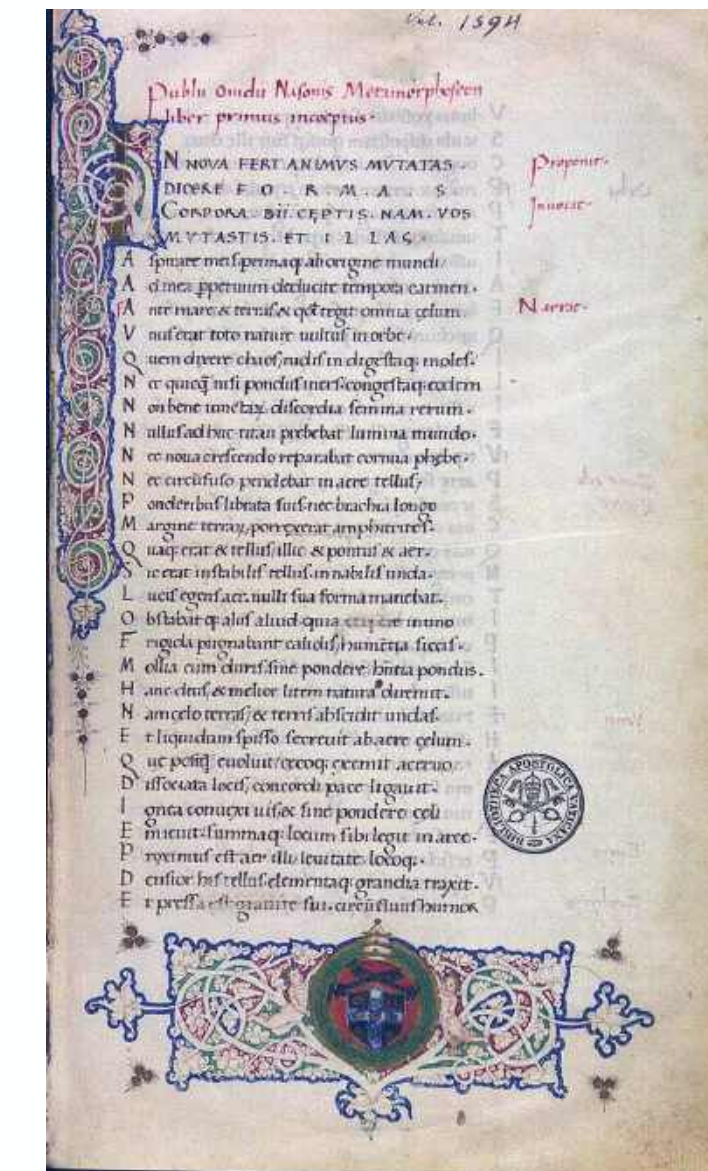 Vat. 1594
Publii Ouidii Nasonis Metamorphoseon
liber primus incoeptus.
IN NOVA FERT ANIMVS MVTATAS
DICERE F O R M A S
CORPORA. DII CĘPTIS. NAM. VOS
MVTASTIS. ET. I L L A S.
Propenit.
Inuocat.
A spirate meis primaq; ab origine mundi
A d mea ꝑpetuum deducite tempora carmen.
A nte mare & terras & qđ tegit omnia cęlum
Narrat.
V nus erat toto nature uultus in orbe.
Q uem dixere chaos, rudis indigestaq; moles.
N ec quicq̄ nisi pondus iners. congestaq; eodem
N on bene iunctaꝝ discordia semina rerum.
N ullus ad huc titan prebebat lumina mundo.
N ec noua crescendo reparabat cornua phębe.
N ec circūfuso pendebat in aere tellus,
P onderibus librata suis. nec brachia longo
M argine terraꝝ porrexerat amphitrites.
Q uaq; erat & tellus, illic & pontus & aer.
S ic erat instabilis tellus. innabilis unda.
L ucis egens aer. nulli sua forma manebat.
O bstabat q; aliis aliud. quia corpore in uno
F rigida pugnabant calidis, humētia siccis.
M ollia cum duris, sine pondere hn̄tia pondus.
H anc deus, & melior litem natura diremit.
N am celo terras, & terris abscidit undas.
E t liquidum spisso secreuit ab aere cęlum.
Q ue postq̄ euoluit, cecoq; exemit aceruo,
D issociata locis, concordi pace ligauit.
I gnea conuexi uis, & sine pondere cęli
E micuit. summaq; locum sibi legit in arce.
P roximus est aer illi leuitate. locoq;.
D ensior his tellus. elementaq; grandia traxit.
E t pressa est grauitate sui. circūfluus humor
BIBLIOTECA APOSTOLICA VATICANA